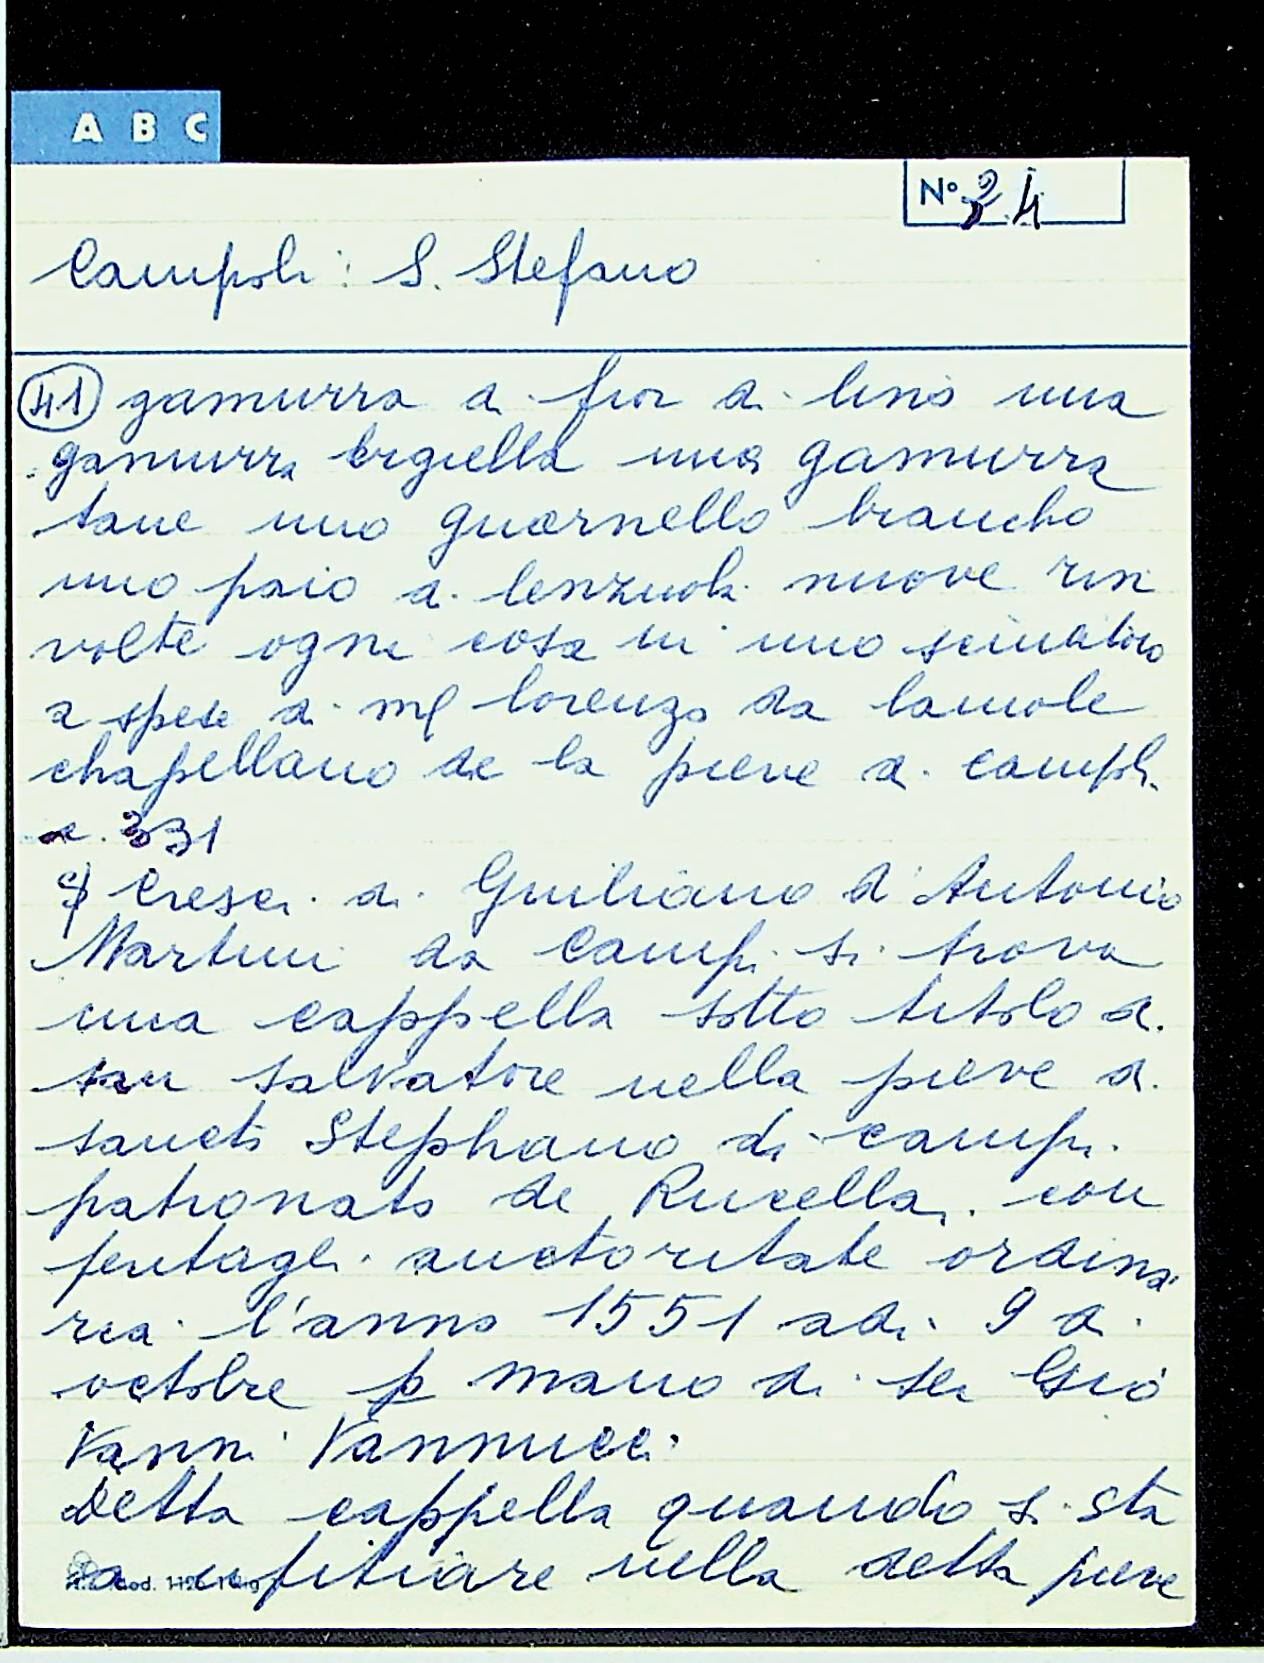 A B C
N° 24
Campoli: S. Stefano
41 gamurra di fior di lino una
gamurra bigiella una gamurra
tane uno guarnello biancho
uno paio di lenzuoli nuove rin
volte ogni cosa in uno sciucatoio
a spese di ml lorenzo da lamole
chapellano de la pieve di campoli
c. 331
Cresci di Giuliano d'Antonio
Martini da Campi si trova
una cappella sotto titolo di
san salvatore nella pieve di
sancto Stephano di campi
patronato de Rucellai con
pentagli auctoritate ordina
ria l'anno 1551 adi 9 di
octobre p mano di ser Gio
vanni Vannucci
Detta cappella quando si sta
a ufitiare nella detta pieve